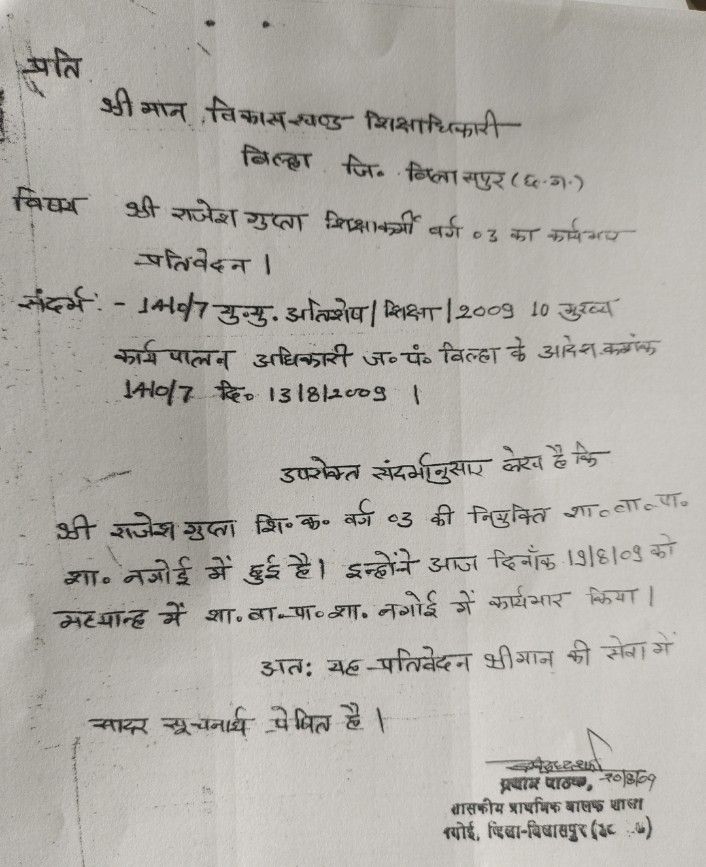 प्रति
श्रीमान विकास खण्ड शिक्षाधिकारी
बिल्हा जि० बिलासपुर (छ.ग.)
विषय श्री राजेश गुप्ता शिक्षाकर्मी वर्ग ०3 का कार्यभार
प्रतिवेदन ।
संदर्भ: - 1410/7 यु.यु. अतिशेष / शिक्षा / 2009 10 मुख्य
कार्य पालन अधिकारी ज०पं० बिल्हा के आदेश क्रमांक
1410/7 दि० 13/8/2009 ।
उपरोक्त संदर्भानुसार लेख है कि
श्री राजेश गुप्ता शि०क० वर्ग ०3 की नियुक्ति शा०बा०पा०
शा० नगोई में हुई है। इन्होंने आज दिनाँक 19/8/09 को
मध्यान्ह में शा०बा०पा०शा० नगोई में कार्यभार किया ।
अत: यह प्रतिवेदन श्रीमान की सेवा में
सादर सूचनार्थ प्रेषित है ।
प्रधान पाठक, 20/8/09
शासकीय प्राथमिक बालक शाला
नगोई, जिला-बिलासपुर